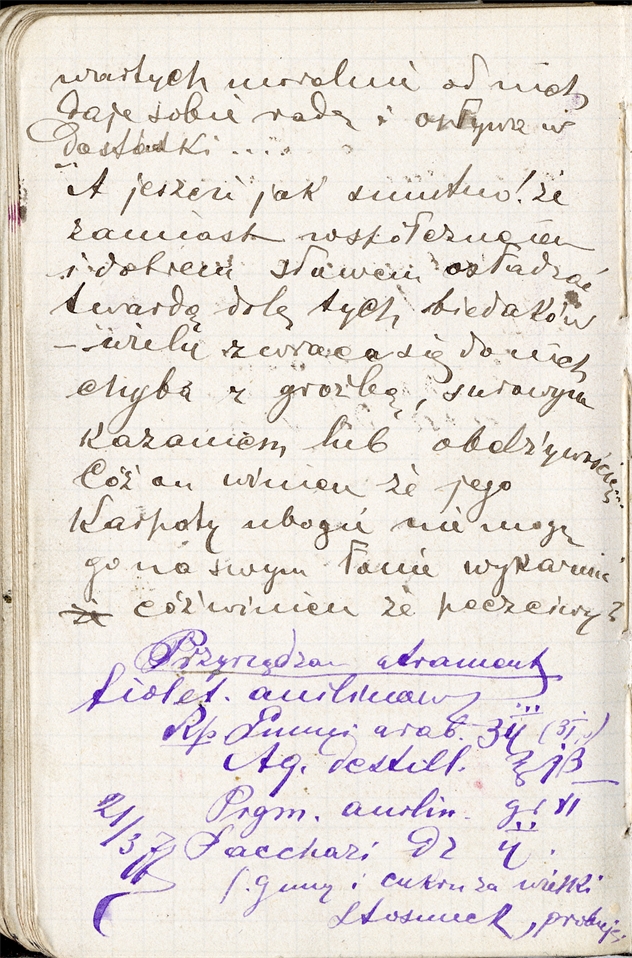 wartych moralnie od nich
daje sobie radę i opływa w
dostatki ....
A jeszcze jak smutno! że
zamiast współczuciem
i dobrem słowem osładzać
twardą dolę tych biedaków
– wielu zwraca się do nich
chyba z groźbą, surowym
kazaniem lub
Cóż on winien że jego
Karpaty ubogie nie mogą
go na swym łonie wykarmić
cóż winien że poczciwy?
Przyrządzam atrament
fiolet. anilinowy
Rp Gummi arab.
Aq. destill.
Pigm. anilin. gr VI
21/3 Sacchari
(. gumy i cukru za wielki
stosunek, próbuję